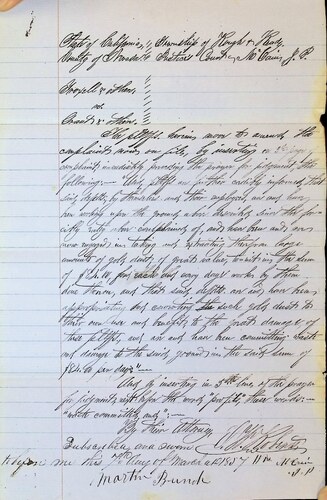 State of California, Township of Rough & Ready
County of Nevada Justices Court, McCain, J.P.
& others
vs.
& others
The pltffs. moves to amend the
complaint now on file, by inserting in
complaint immediately preceding the prayer for judgment, the
following:- And pltffs are further informed, that
said defts, by themselves and their employees, are and have
been working upon the ground above described, since the
entry complained of, and have been and are
now engaged in taking and extracting therefrom large
amounts of gold dust, of greater value, to wit in the sum
of $84.00, for each and every day's work by them
done thereon, and that said defts are and have been
appropriating and converting the said gold dust to
their own use and benefit, to the great damage of
these pltffs, and are and have been committing waste
and damage to the said ground in the said sum of
$84.00 per day"-
And by inserting in 3rd line of the prayer
for judgment, after the word "profits," these words:-
"waste committed, and":-
By their Attorney
Subscribed and sworn
to before me this 7th day of March AD 1857
J.P.
Martin Bunch